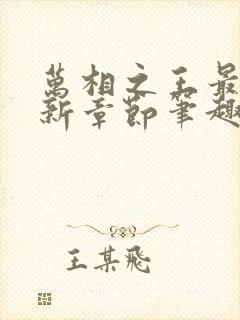 萬相之王最
新章節筆趣
王某飛